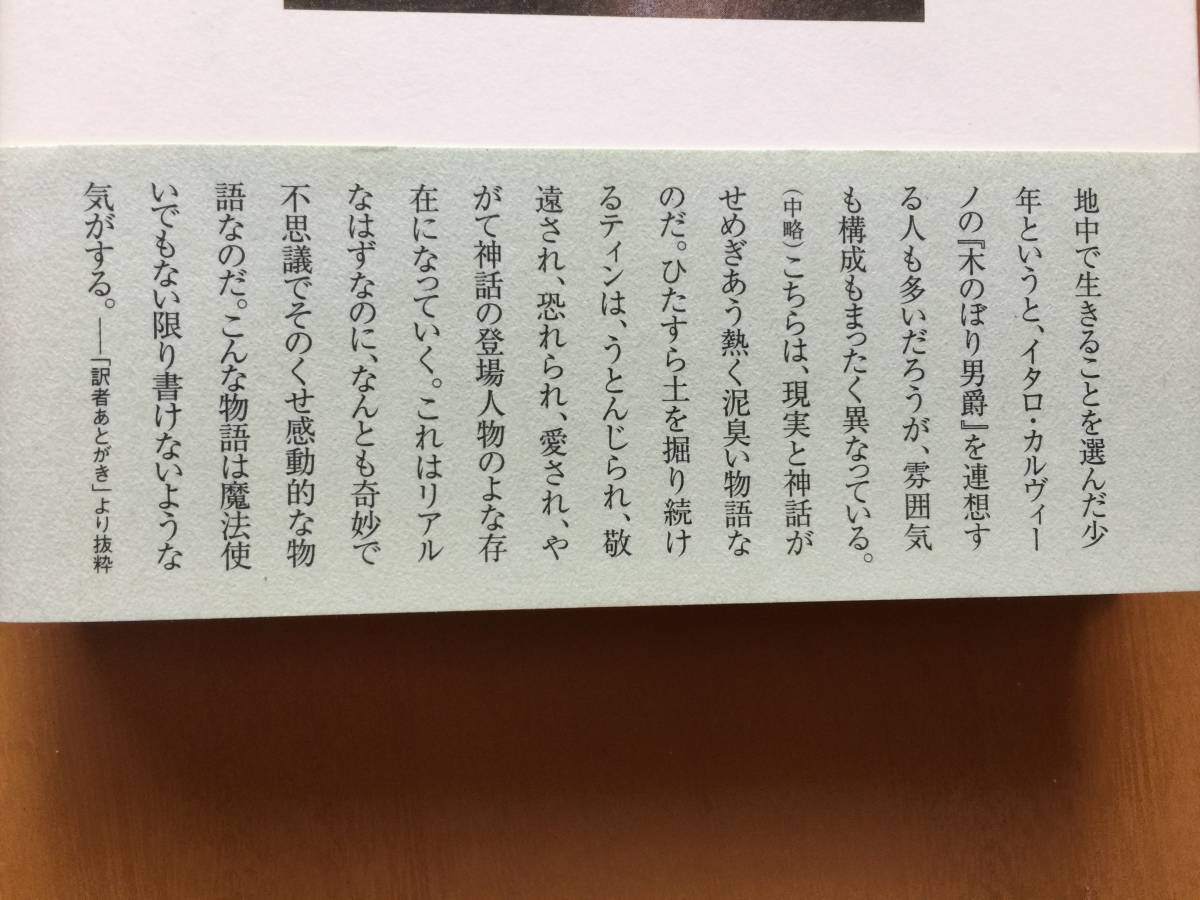 地中で生きることを選んだ少
年というと、イタロ・カルヴィー
ノの『木のぼり男爵』を連想す
る人も多いだろうが、雰囲気
も構成もまったく異なっている。
（中略）こちらは、現実と神話が
せめぎあう熱く泥臭い物語な
のだ。ひたすら土を掘り続け
るティンは、うとんじられ、敬
遠され、恐れられ、愛され、や
がて神話の登場人物のよな存
在になっていく。これはリアル
なはずなのに、なんとも奇妙で
不思議でそのくせ感動的な物
語なのだ。こんな物語は魔法使
いでもない限り書けないような
気がする。――「訳者あとがき」より抜粋